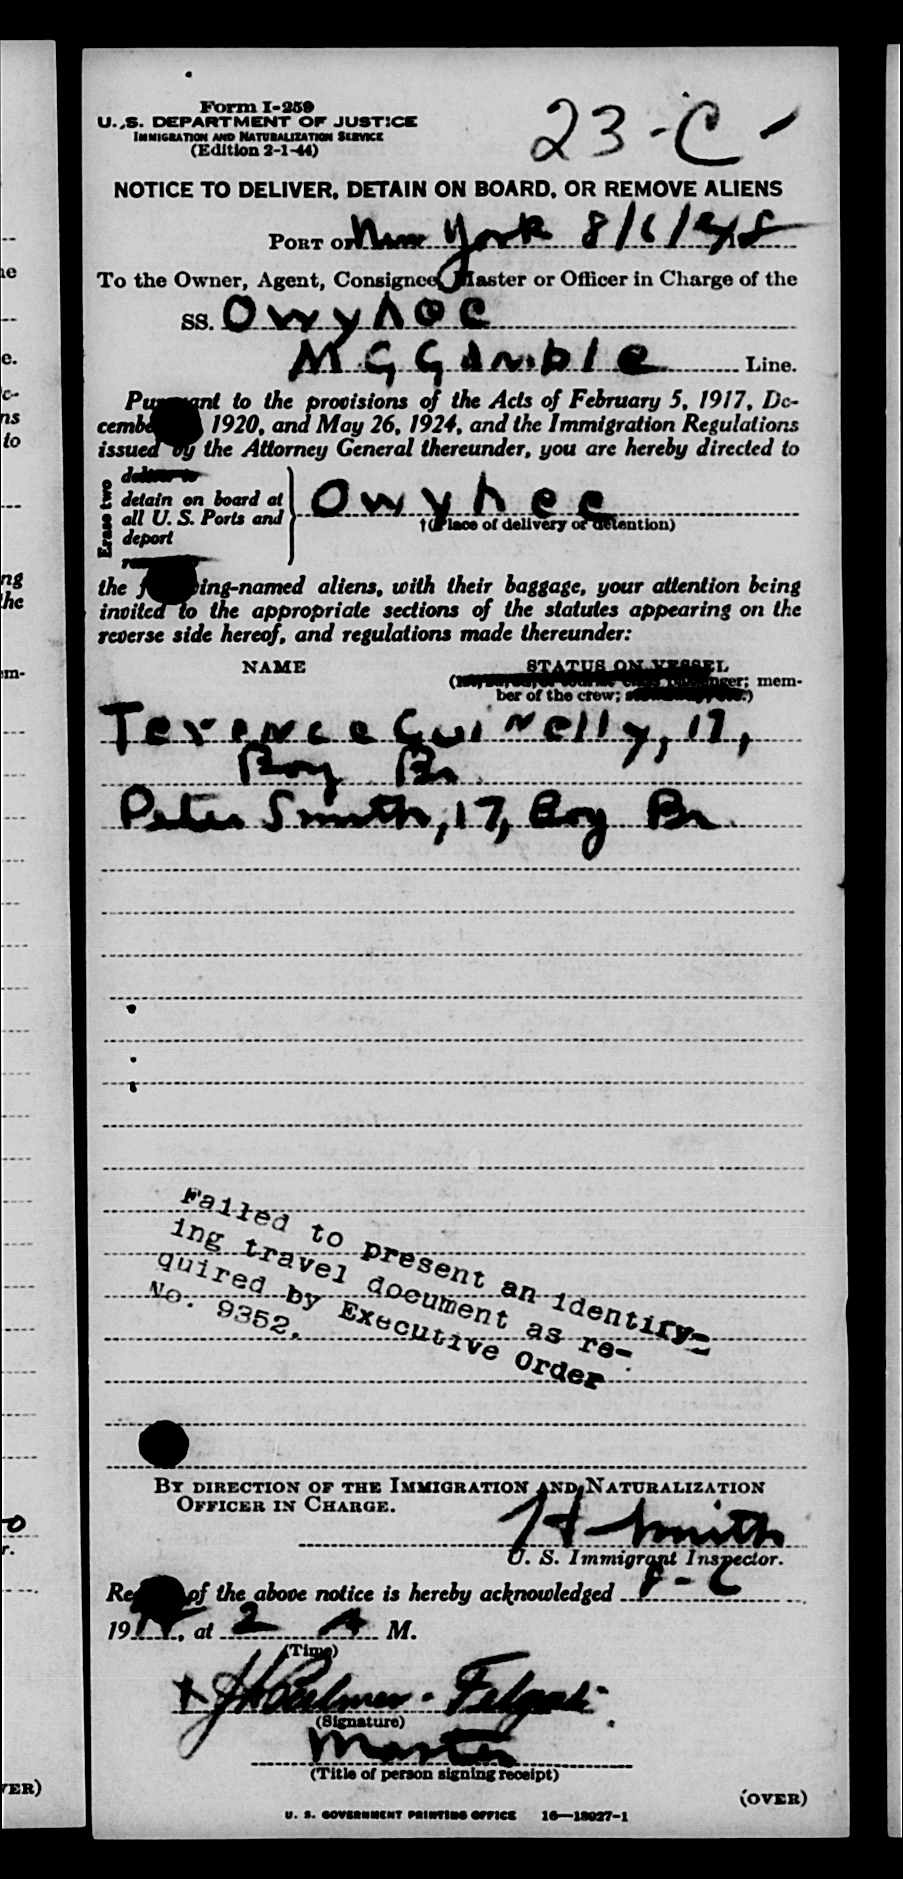 Form I-259
U. S. DEPARTMENT OF JUSTICE
IMMIGRATION AND NATURALIZATION SERVICE
(Edition 2-1-44)
23-C-
NOTICE TO DELIVER, DETAIN ON BOARD, OR REMOVE ALIENS
PORT OF New York 8/6/
To the Owner, Agent, Consignee, Master or Officer in Charge of the
SS. Owyhee
Line.
to the provisions of the Acts of February 5, 1917, De-
1920, and May 26, 1924, and the Immigration Regulations
issued by the Attorney General thereunder, you are hereby directed to
Erase two
deliver to
detain on board at
all U. S. Ports and
deport
Owyhee
†(Place of delivery or detention)
the ing-named aliens, with their baggage, your attention being
invited to the appropriate sections of the statutes appearing on the
reverse side hereof, and regulations made thereunder:
NAME STATUS ON VESSEL
mem-
ber of the crew;
Terence Guinelly, 17,
Boy Br
Peter Smith, 17, Boy Br
Failed to present an identify-
ing travel document as re-
quired by Executive Order
No. 9352.
BY DIRECTION OF THE IMMIGRATION AND NATURALIZATION
OFFICER IN CHARGE.
H Smith
U. S. Immigrant Inspector.
of the above notice is hereby acknowledged 8-6
19 , at 2 A M.
(Time)
(Signature)
Master
(Title of person signing receipt)
(OVER)
U. S. GOVERNMENT PRINTING OFFICE 16—13927-1